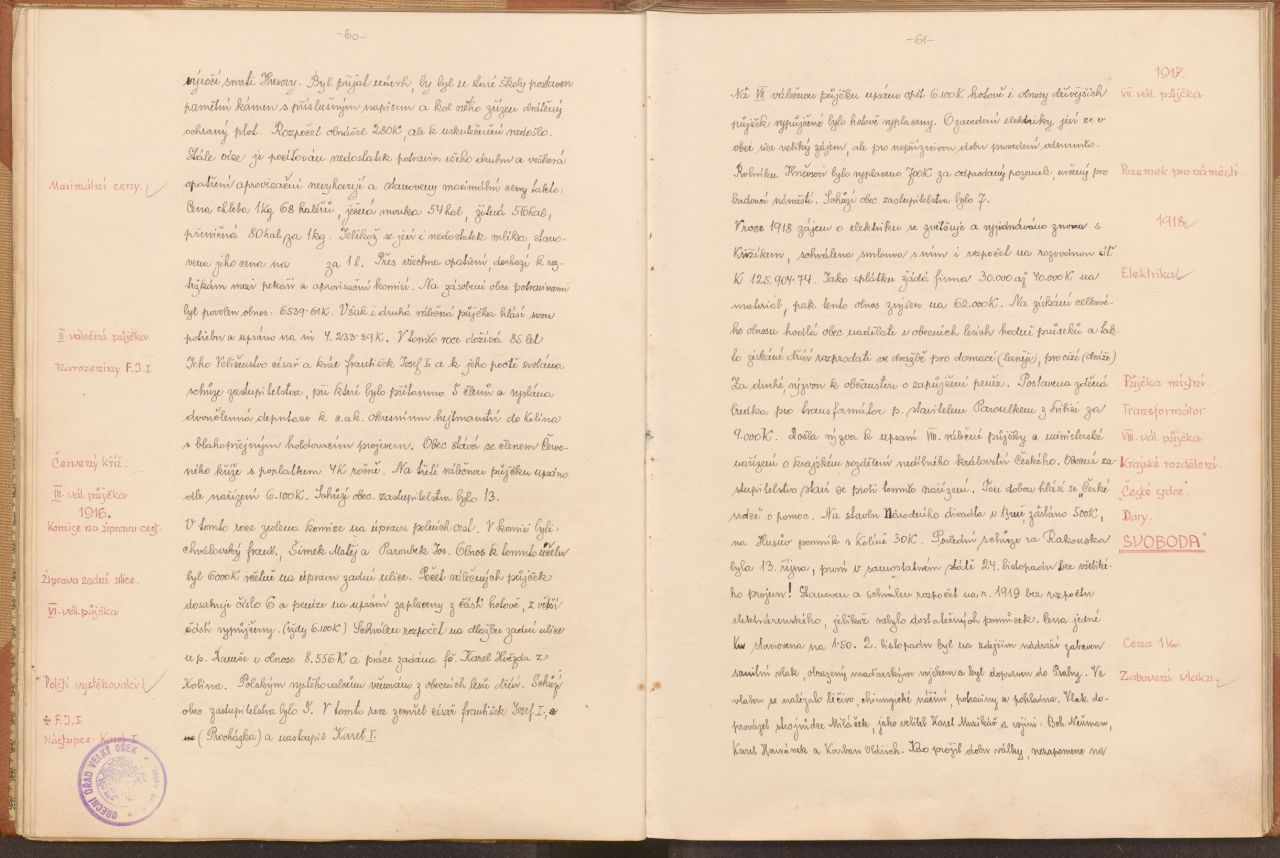 -60-
výročí smrti Husovy. Byl přijat návrh, by byl u staré školy postaven
pamětní kámen s příslušným nápisem a kol něho zřízen drátěný
ochranný plot. Rozpočet obnášel 280K, ale k uskutečnění nedošlo.
Stále více je pociťován nedostatek potravin všeho druhu a veškerá
Maximální ceny.
opatření aprovisační nevyhovují a stanoveny maximální ceny takto:
Cena chleba 1kg 68 haléřů, ječná mouka 54 hal, žitná 56 hal,
pšeničná 80 hal, za 1kg. Jelikož se jeví i nedostatek mléka, stano-
vena jeho cena na za 1 l. Přes všechna opatření, dochází k roz-
tržkám mezi pekaři a aprovisační komisí. Na zásobení obce potravinami
byl povolen obnos: 6.539·61K. Však i druhá válečná půjčka hlásí svou
II. válečná půjčka
potřebu a upsáno na ni 4.233·39K. V tomto roce dožívá 85 let
Narozeniny F. J. I
Jeho Veličenstvo císař a král František Josef I. a k jeho poctě svolána
schůze zastupitelstva, při které bylo přítomno 5 členů a vyslána
dvoučlenná deputace k c.a.k. okresnímu hejtmanství do Kolína
s blahopřejným holdovacím projevem. Obec stává se členem Červe-
Červený kříž.
ného kříže s poplatkem 4K ročně. Na třetí válečnou půjčku upsáno
III. vál. půjčka
dle nařízení 6.100K. Schůzí obec. zastupitelstva bylo 13.
1916.
Komise na úpravu cest.
V tomto roce zvolena komise na úpravu polních cest. V komisi byli:
Chvalovský Frant., Šimek Matěj a Paroubek Jos. Obnos k tomuto účelu
Úprava zadní ulice.
byl 6000K včetně na úpravu zadní ulice. Počet válečných půjček
VI. vál. půjčka
dosahuje číslo 6 a peníze na upsání zaplaceny z části hotově, z větší
části vypůjčeny. (vždy 6.100K) Schválen rozpočet na dlažbu zadní ulice
u p. v obnose 8.556K a práce zadána fě. Karel Hvězda z
Polští vystěhovalci
Kolína. Polským vystěhovalcům věnováno z obecních lesů dříví. Schůzí
obec. zastupitelstva bylo 5. V tomto roce zemřel císař František Josef I.,
✠ F. J. I
Nástupce - Karel I.
(Procházka) a nastoupil Karel I.
OBECNÍ ÚŘAD VELKÝ OSEK
-61-
1917.
Na VII válečnou půjčku upsáno opět 6.100K hotově i obnosy dřívějších
VII. vál. půjčka
půjček vypůjčené bylo hotově vyplaceny. O zavedení elektriky jeví se v
obci sice veliký zájem, ale pro nepříznivou dobu provedení odsunuto.
Rolníku bylo vyplaceno 700K za odprodaný pozemek, určený pro
Pozemek pro náměstí.
budoucí náměstí. Schůzí obec zastupitelstva bylo 7.
1918.
V roce 1918 zájem o elektriku se zvětšuje a vyjednáváno znovu s
Křižíkem, schválena smlouva s ním i rozpočet na rozvodnou síť
Elektrika
K 125.904·74. Jako splátku žádá firma 30.000 až 40.000K na
materiál, pak tento obnos zvýšen na 62.000K. Na získání celkové-
ho obnosu hodlá obec nadělati v obecních lesích hodně průseků a tak-
to získané dříví rozprodati ve dražbě pro domácí (levněji), pro cizí (dráže)
Půjčka místní.
Za druhé, výzvou k občanstvu o zapůjčení peněz. Postavena zděná
Transformátor
budka pro transformátor p. stavitelem Paroulkem z Libice za
VIII. vál. půjčka
9.000K. Došla výzva k upsání VIII. válečné půjčky a ministerské
Krajské rozdělení.
nařízení o krajském rozdělení nedílného království Českého. Obecní za-
stupitelstvo staví se proti tomuto nařízení. Tou dobou hlásí se „České
„České srdce".
srdce" o pomoc. Na stavbu Národního divadla v Brně, zasláno 500K,
Dary.
na Husův pomník v Kolíně 30K. Poslední schůze za Rakouska
SVOBODA"
byla 13. října, první v samostatném státě 24. listopadu bez většíké-
ho projevu! Stanoven a schválen rozpočet na r. 1919 bez rozpočtu
elektrárenského, jelikož nebylo dostatečných pomůcek. Cena jedné
Cena 1 Kv.
Kv stanovena na 1·50. 2. listopadu byl na zdejším nádraží zabaven
Zabavení vlaku.
sanitní vlak, obsazený maďarským vojskem a byl dopraven do Prahy. Ve
vlaku se nalézalo léčivo, chirurgické náčiní, potraviny a pokladna. Vlak do-
provázel strojvůdce Miláček, jako velitel Karel Munikář a vojíni: Boh. Neuman,
Karel Havránek a Korban Oldřich. Kdo prožil dobu války, nezapomene na